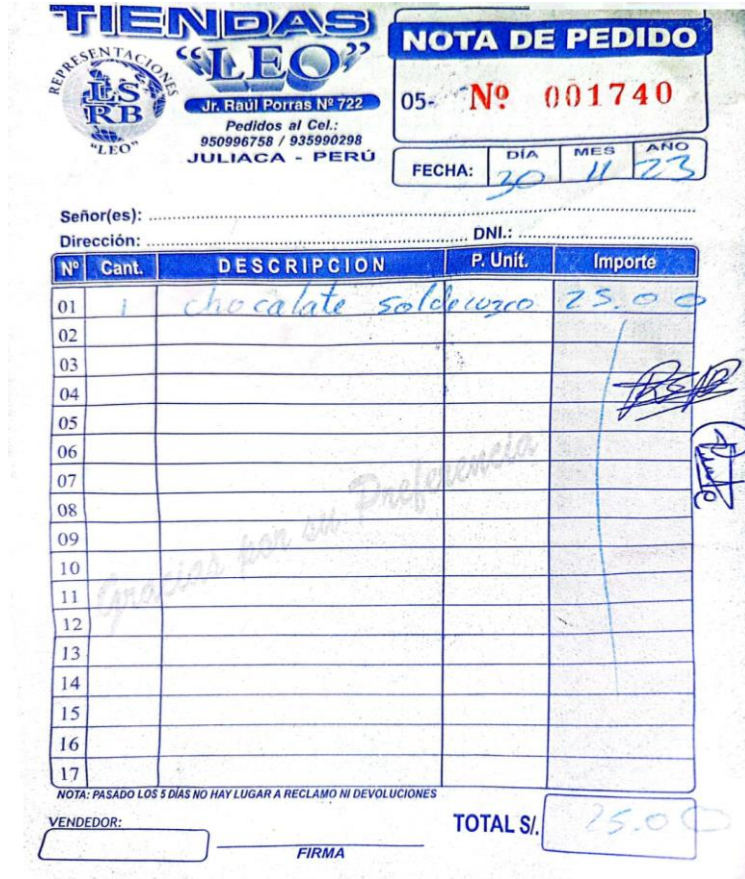 TIENDAS
"LEO"
REPRESENTACIONES
LS
RB
"LEO"
Jr. Raúl Porras Nº 722
Pedidos al Cel.:
950996758 / 935990298
JULIACA - PERÚ
NOTA DE PEDIDO
05- Nº 001740
FECHA: DÍA MES AÑO
30 11 23
Señor(es):
Dirección: DNI.:
Nº Cant. DESCRIPCION P. Unit. Importe
01 1 chocalate soldecuzco 25.00
02
03
04
05
06
07
08
09
10
11
12
13
14
15
16
17
Gracias por su Preferencia
NOTA: PASADO LOS 5 DÍAS NO HAY LUGAR A RECLAMO NI DEVOLUCIONES
VENDEDOR: TOTAL S/. 25.00
FIRMA